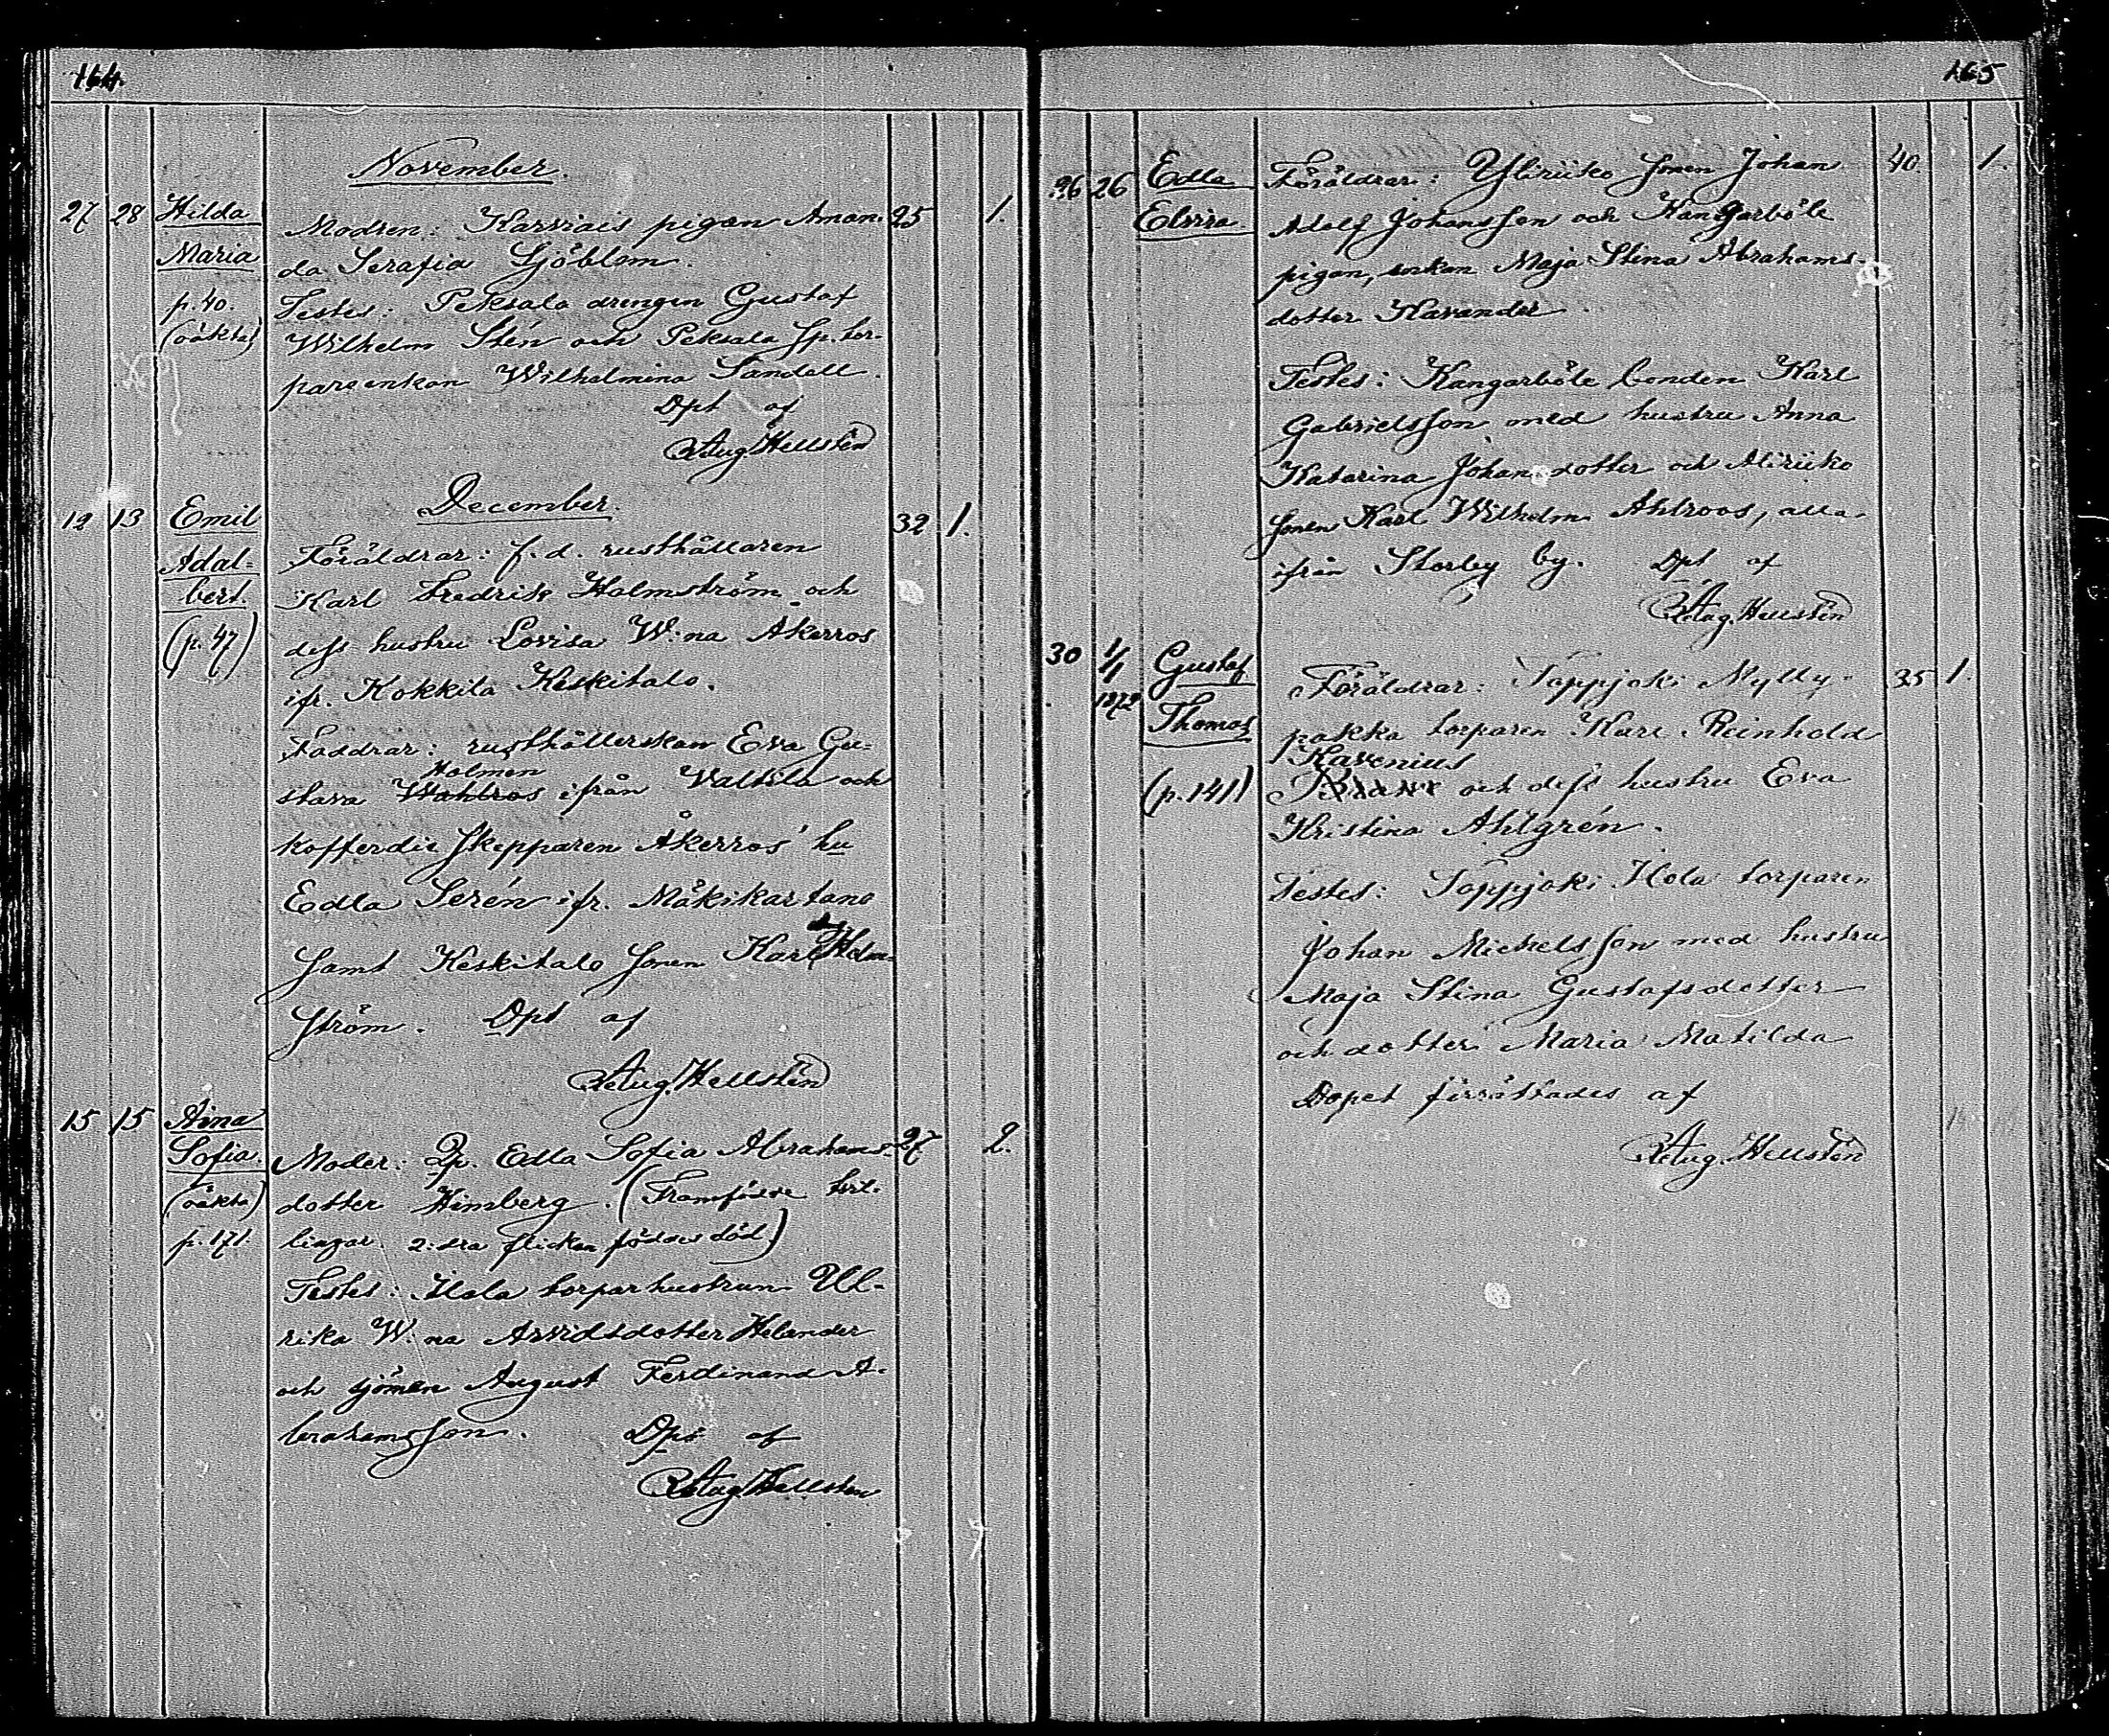 164.
November.
27 28 Hilda Maria p. 40. (oäkta)
Modren: Karviais pigan Aman- 25 1.
da Serafia Sjöblom.
Testes: Peksala drengen Gustaf
Wilhelm Stén och Peksala Sp. tor-
pareenkan Wilhelmina Sandell.
Dpt af
Aug. Hellstén
December.
12 13 Emil Adal- bert. (p. 47) 32 1.
Föräldrar: f. d. rusthållaren
Karl Fredrik Holmström och
dess hustru Lovisa W:na Åkerros
ifr. Kokkila Keskitalo.
Faddrar: rusthållerskan Eva Gu-
Holmen
stava Wahlros ifrån Valttila och
kofferdie skepparen Åkerros' hu
Edla Serén ifr. Mäkikartano
samt Keskitalo sonen Karl Holm-
ström. Dpt af
Aug. Hellstén
15 15 Aina Sofia. (oäkta) p. 171.
Moder: Edla Sofia Abrahams- 27 2.
dotter Himberg. (Framfödde tvil-
lingar. 2:dra flickan föddes död)
Testes: Ilola torparhustrun Ul-
rika W:na Arvidsdotter Helander
och sjömen August Ferdinand A-
brahamsson. Dpt af
Aug. Hellsten
165
26 26 Edla Elvira.
Föräldrar: Yliriiko sonen Johan 40. 1.
Adolf Johansson och Kangarböle
pigan, enkan Maja Stina Abrahams-
dotter Kavander.
Testes: Kangarböle bonden Karl
Gabrielsson med hustru Anna
Katarina Johansdotter och Aliriiko
sonen Karl Wilhelm Ahlroos, alla
ifrån Storby by. Dpt af
Aug. Hellstén
30 1/1 1872 Gustaf Thomas (p. 141)
Föräldrar: Toppjoki Mylly- 35 1.
pakka torparen Karl Reinhold
Kavenius
och dess hustru Eva
Kristina Ahlgrén.
Testes: Toppjoki Ilola torparen
Johan Michelsson med hustru
Maja Stina Gustafsdotter
och dotter Maria Matilda
Dopet förrättades af
Aug. Hellstén